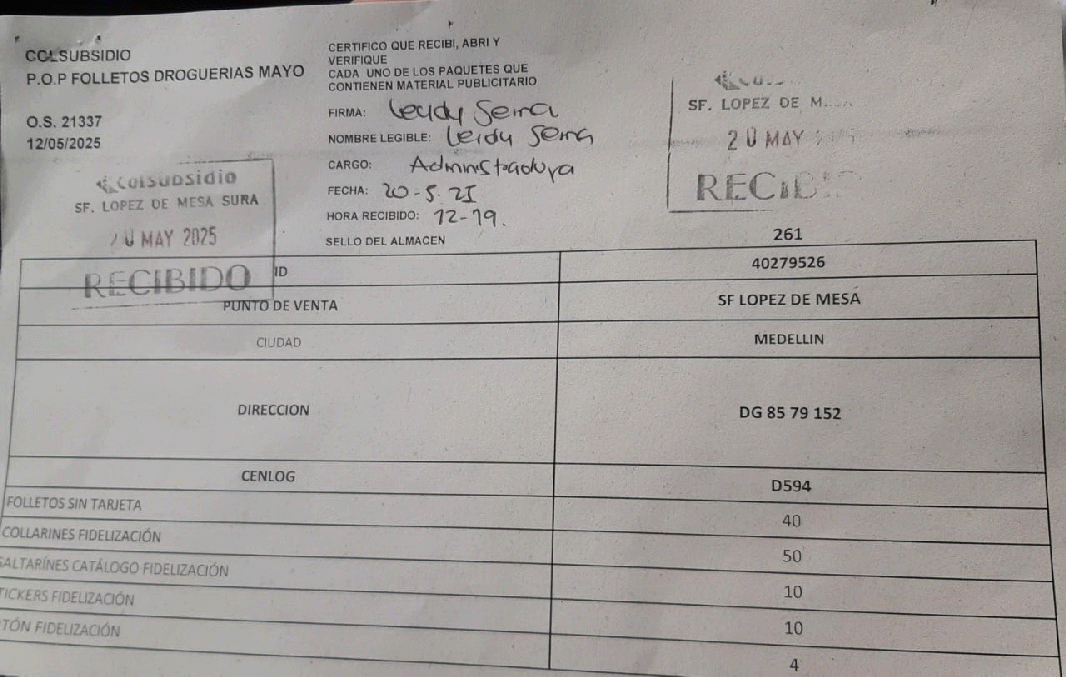 COLSUBSIDIO
P.O.P FOLLETOS DROGUERIAS MAYO
O.S. 21337
12/05/2025
CERTIFICO QUE RECIBI, ABRI Y
VERIFIQUE
CADA UNO DE LOS PAQUETES QUE
CONTIENEN MATERIAL PUBLICITARIO
FIRMA: Leydy Serna
NOMBRE LEGIBLE: Leidy Serna
CARGO: Administradora
FECHA: 20-5-25
HORA RECIBIDO: 12-19.
SELLO DEL ALMACEN
Colsubsidio
SF. LOPEZ DE MESA SURA
20 MAY 2025
RECIBIDO
SF. LOPEZ DE
20 MAY
261
ID 40279526
PUNTO DE VENTA SF LOPEZ DE MESA
CIUDAD MEDELLIN
DIRECCION DG 85 79 152
CENLOG D594
FOLLETOS SIN TARJETA 40
COLLARINES FIDELIZACIÓN 50
SALTARÍNES CATÁLOGO FIDELIZACIÓN 10
TICKERS FIDELIZACIÓN 10
TÓN FIDELIZACIÓN 4